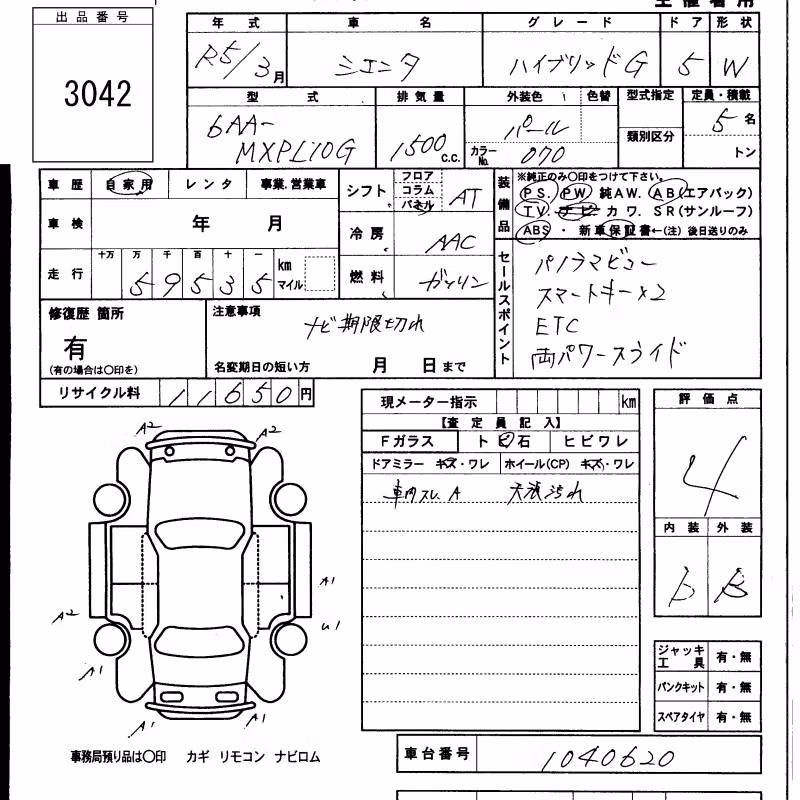 出品番号
3042
年式 車名 グレード ドア 形状
R5/3月 シエンタ ハイブリッドG 5 W
型式 排気量 外装色 色替 型式指定 定員・積載
6AA-
MXPL10G 1500 c.c. パール 類別区分 5名
カラーNo. 070 トン
車歴 自家用 レンタ 事業.営業車
車検 年 月
走行 十万 万 千 百 十 一
59535 km マイル
シフト フロア コラム パネル AT
冷房 AAC
燃料 ガソリン
装備品
※純正のみ○印をつけて下さい。
PS. PW 純AW. AB(エアバック)
TV. ナビ カワ. SR(サンルーフ)
ABS ・ 新車保証書←(注) 後日送りのみ
セールスポイント
パノラマビュー
スマートキー×2
ETC
両パワースライド
修復歴 箇所
有
(有の場合は○印を)
注意事項
ナビ期限切れ
名変期日の短い方 月 日まで
リサイクル料 11650円
現メーター指示 km
【査定員記入】
Fガラス トビ石 ヒビワレ
ドアミラー キズ・ワレ ホイール(CP) キズ・ワレ
車内スレ A 天張汚れ
評価点
4
内装 外装
b B
A2 A2
A1
A2 U1
A1
A1 A1
ジャッキ工具 有・無
パンクキット 有・無
スペアタイヤ 有・無
事務局預り品は○印 カギ リモコン ナビロム
車台番号 1040620